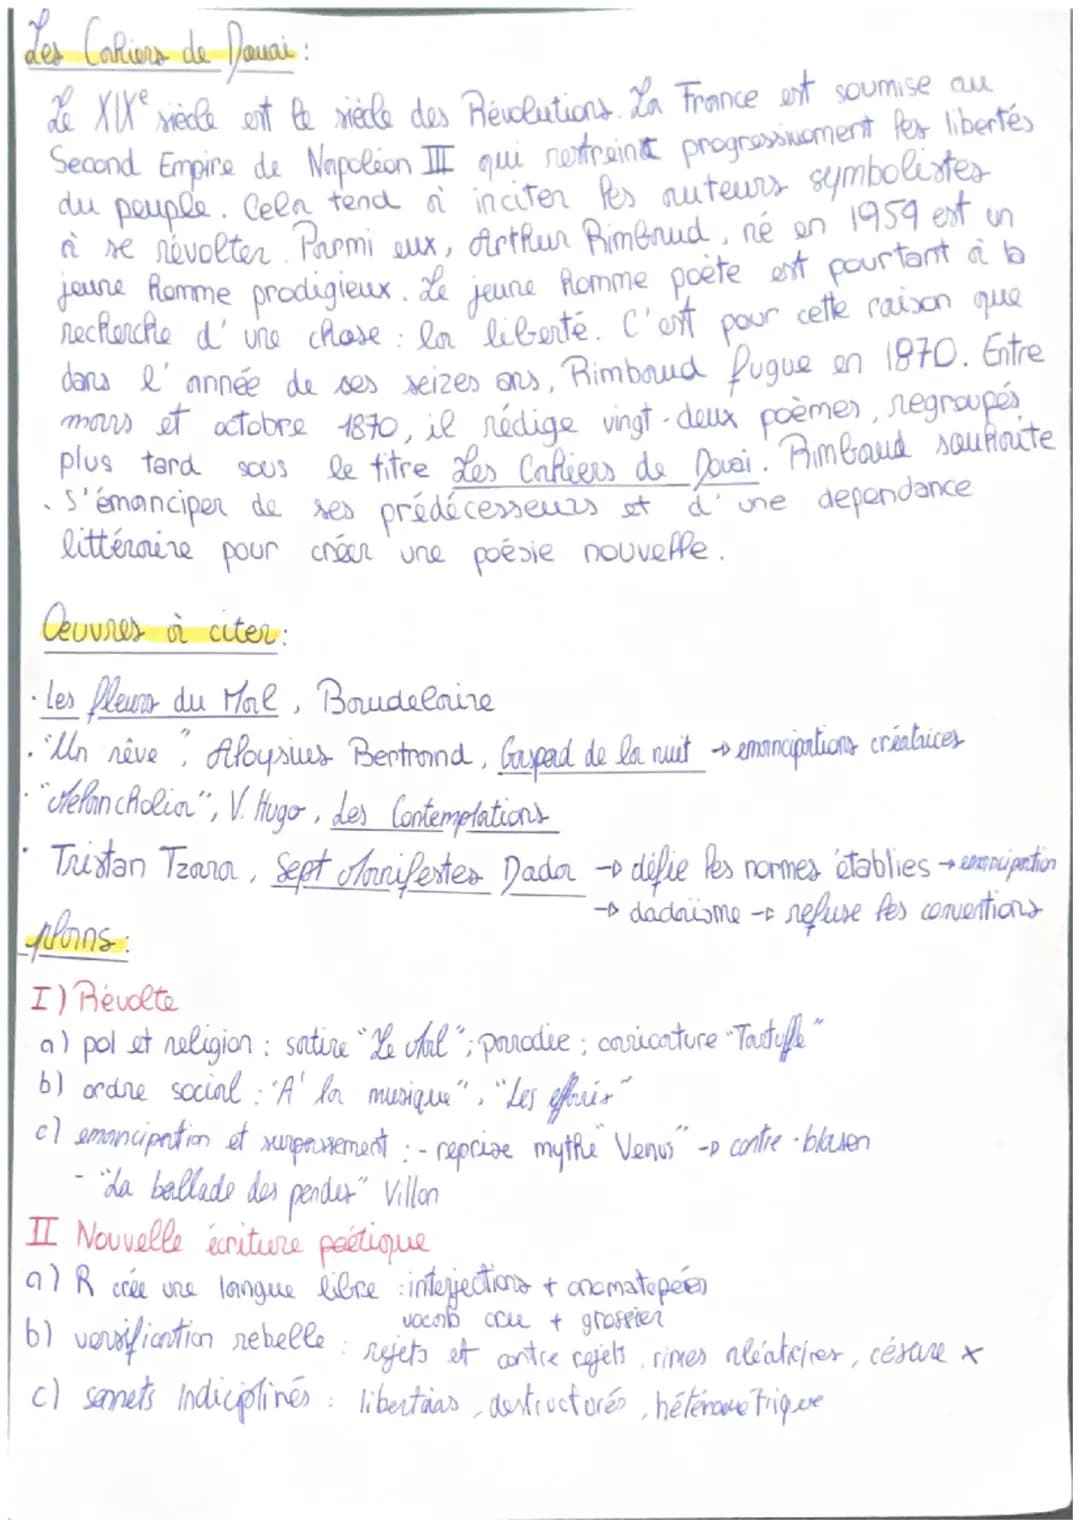 Les Cahiers de Douai :
Le XIXe siècle est le siècle des Révolutions. La France est soumise au
Second Empire de Napoléon III qui restreint progressivement les libertés
du peuple. Cela tend à inciter les auteurs symbolistes
à se révolter. Parmi eux, Arthur Rimbaud, né en 1959 est un
jeune homme prodigieux. Le jeune homme poète est pourtant à la
recherche d'une chose : la liberté. C'est pour cette raison que
dans l'année de ses seizes ans, Rimbaud fugue en 1870. Entre
mars et octobre 1870, il rédige vingt-deux poèmes, regroupés
plus tard sous le titre Les Cahiers de Douai. Rimbaud souhaite
s'émanciper de ses prédécesseurs et d'une dependance
littéraire pour créer une poésie nouvelle.
Œuvres à citer :
· Les fleurs du Mal, Baudelaire
· "Un rêve", Aloysius Bertrand, Gaspad de la nuit → emancipations créatrices
· "Melancholia", V. Hugo, Les Contemplations
· Tristan Tzara, Sept Manifestes Dada → défie les normes établies → emancipation
→ dadaïsme → refuse les conventions
plans :
I) Révolte
a) pol et religion : satire "Le Mal" ; parodie ; caricature "Tartuffe"
b) ordre social : "A la musique", "Les effarés"
c) emancipation et surpassement : - reprise mythe "Venus" → contre-blason
- "La ballade des pendus" Villon
II Nouvelle écriture poétique
a) R crée une langue libre : interjections + onomatopées
vocab cru + grossier
b) versification rebelle : rejets et contre rejets, rimes aléatoires, césure x
c) sonnets Indiciplinés : libertains, destructurés, hétérométrique